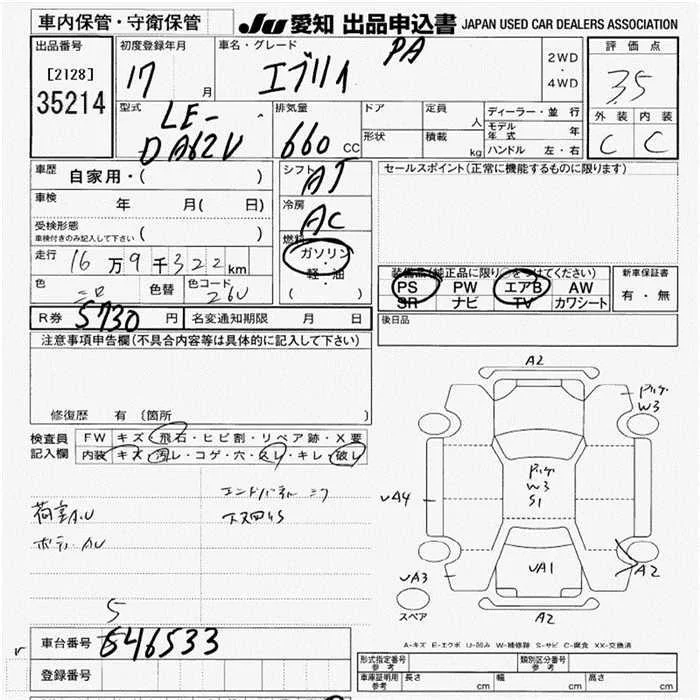 車内保管・守衛保管 JU 愛知 出品申込書 JAPAN USED CAR DEALERS ASSOCIATION
出品番号 初度登録年月 車名・グレード 2WD ・ 4WD 評価点
[2128] 17 月 エブリイ PA 3.5
35214 外装 内装
C C
型式 LE- DA62V 排気量 660 CC ドア 定員 人 ディーラー・並行
形状 積載 kg モデル年式 年
ハンドル 左・右
車歴 自家用・( ) シフト AT セールスポイント(正常に機能するものに限ります)
車検 年 月( 日) 冷房 AC
受検形態 車検付きのみ記入して下さい ( ) 燃料 ガソリン・軽・油 ( )
走行 16 万 9 千 322 km
色 色替 色コード 26U
装備品(純正品に限り をつけてください) 新車保証書
PS PW エアB AW 有・無
SR ナビ TV カワシート
R券 5730 円 名変通知期限 月 日 後日品
注意事項申告欄(不具合内容等は具体的に記入して下さい)
修復歴 有 〔箇所 〕
検査員 記入欄 FW キズ・飛石・ヒビ割・リペア跡・X要
内装 キズ・汚レ・コゲ・穴・スレ・キレ・破レ
荷室A.U
ボディーAU
5
A2
W3
W3
S1
UA4
UA1
UA3
A2
スペア
A2
A-キズ E-エクボ U-凹み W-補修跡 S-サビ C-腐食 XX-交換済
車台番号 546533
登録番号
形式指定番号 参考 類別区分番号 参考
車庫証明用 参考 長さ cm 幅 cm 高さ cm